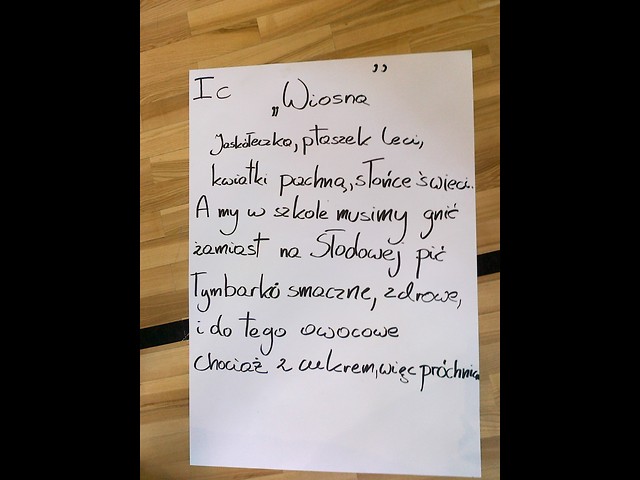 I c
„Wiosna”
Jaskółeczka, ptaszek leci,
kwiatki pachną, słońce świeci.
A my w szkole musimy gnić
zamiast na Słodowej pić
Tymbarki smaczne, zdrowe,
i do tego owocowe
chociaż z cukrem, więc próchnica